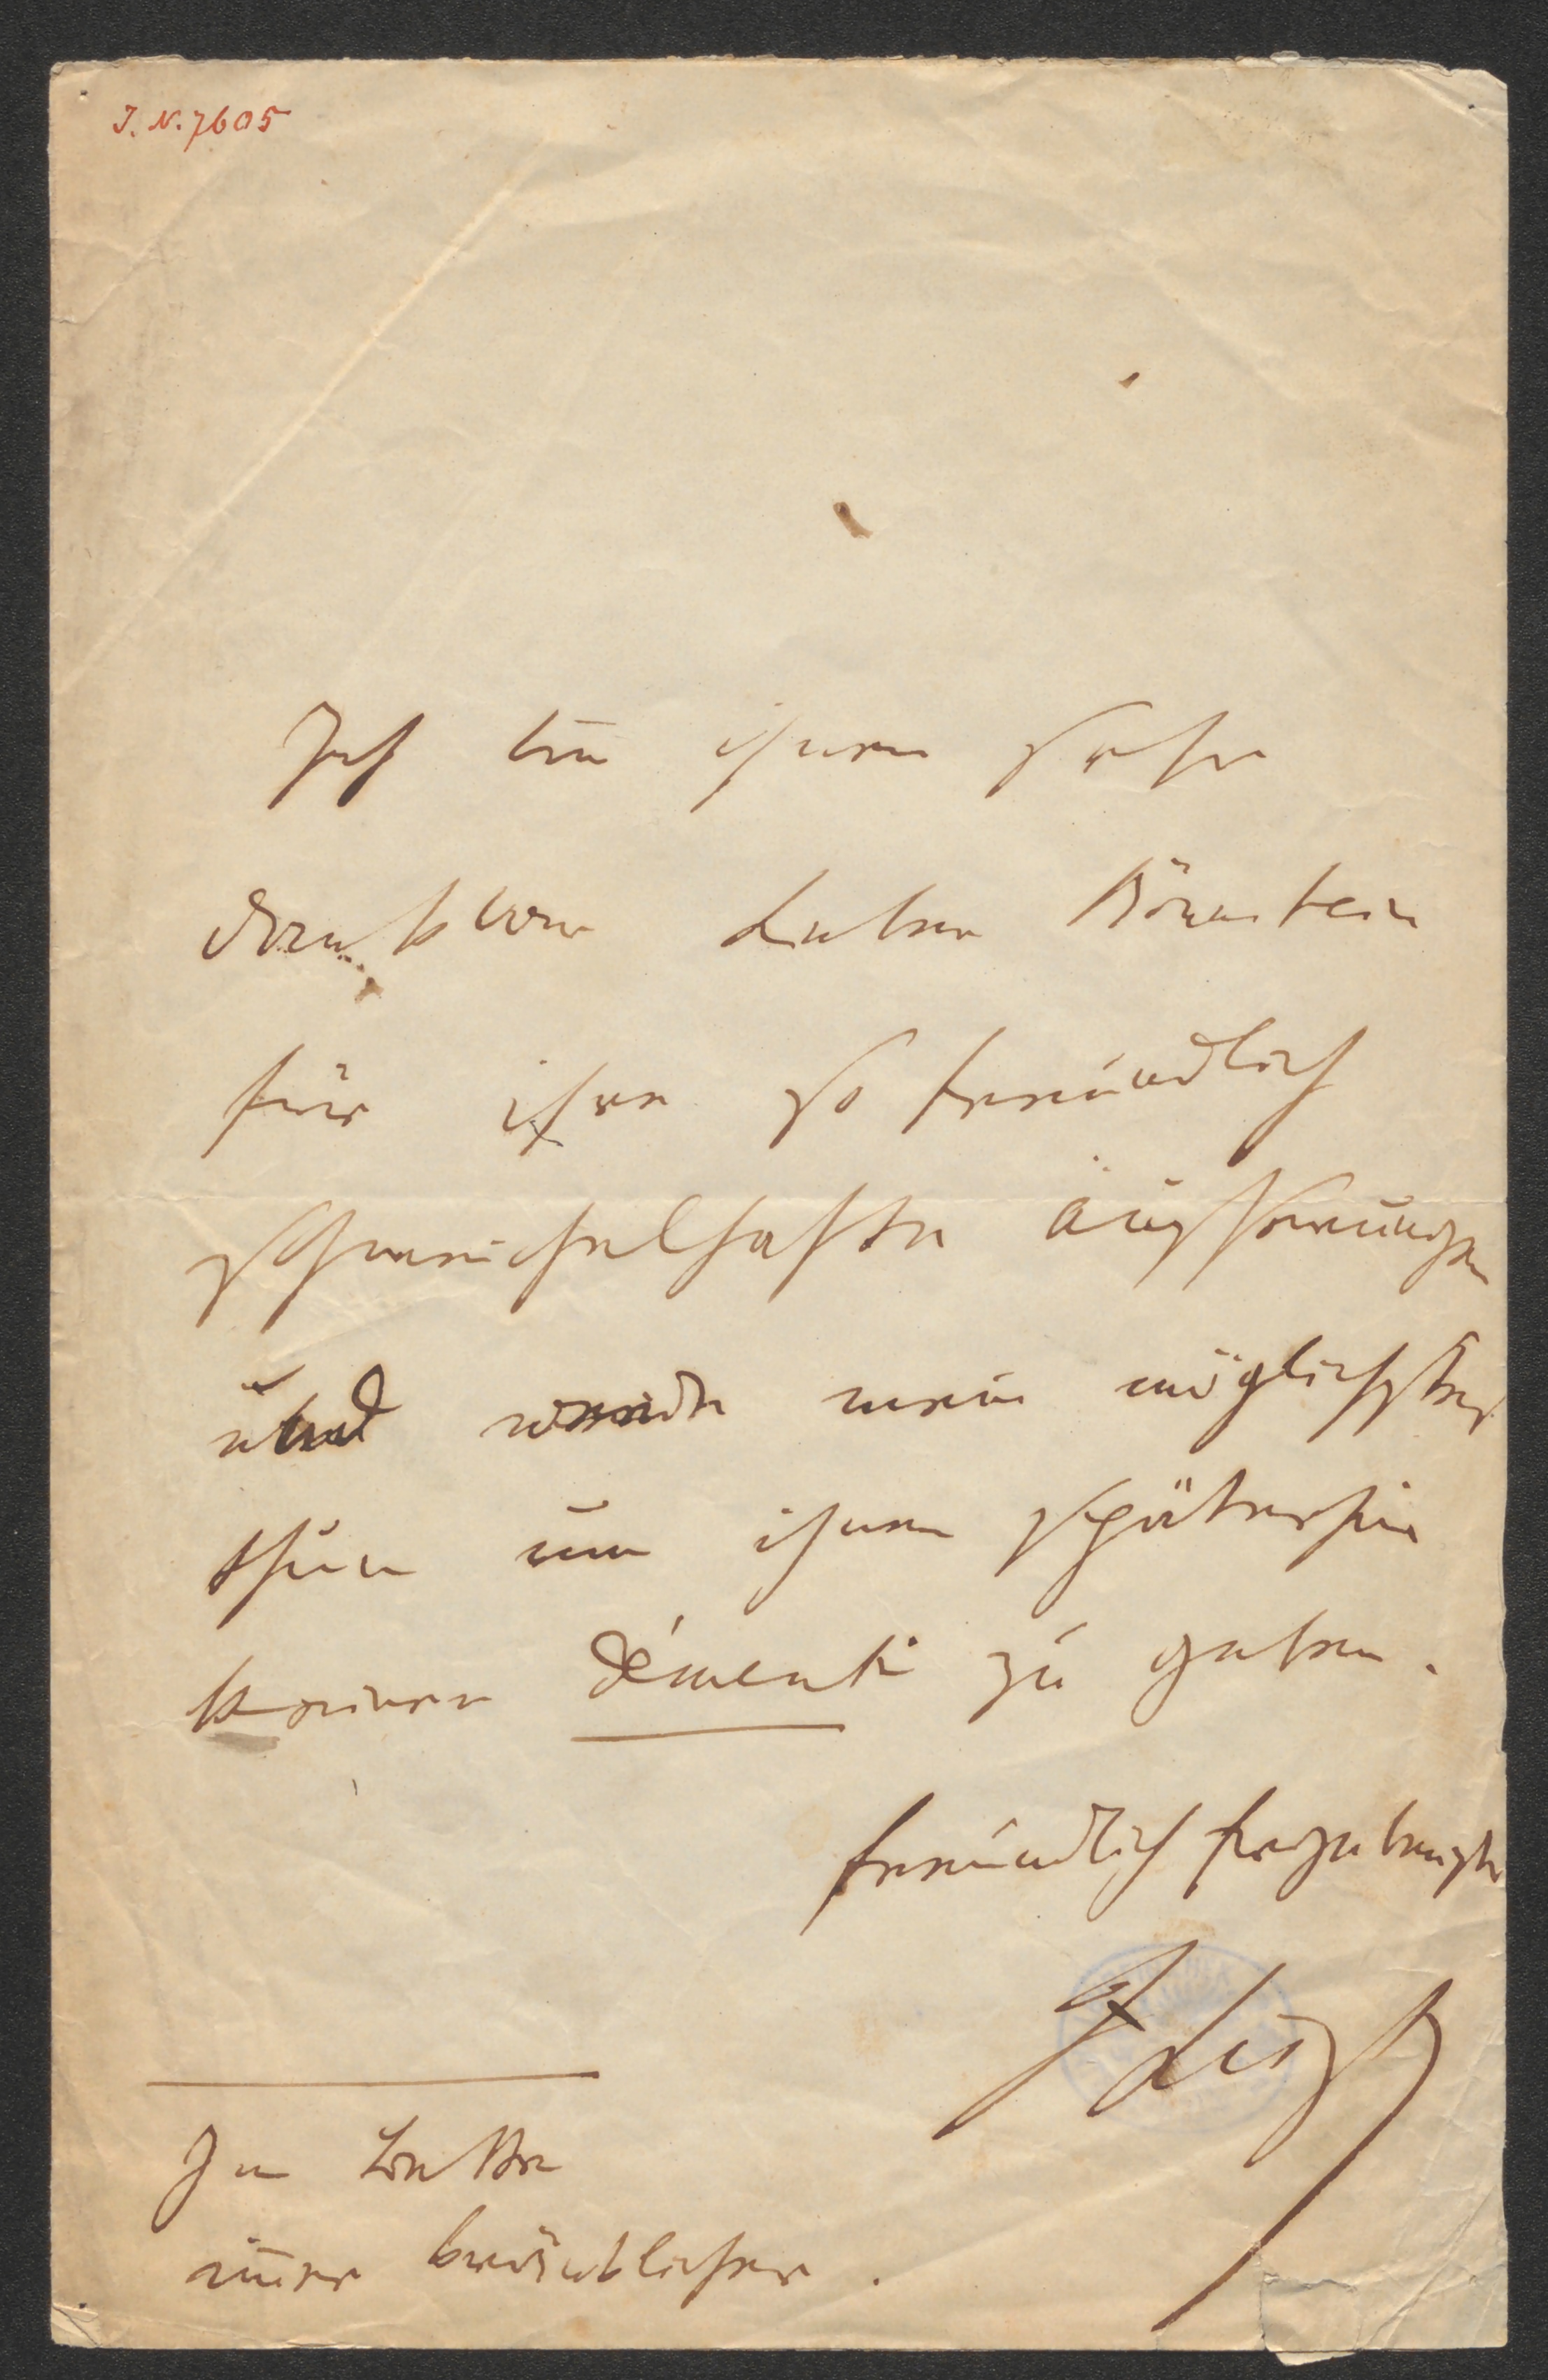 J. N. 7605
Ich bin ihnen sehr
dankbar Lieber Börnstein
für ihre so freundlich
schmeichelhafte äusserungen
und werde mein möglichstes
thun um ihnen späterhin
keinen Démenti zu geben.
freundlich ergebenst
F Liszt
In Eile